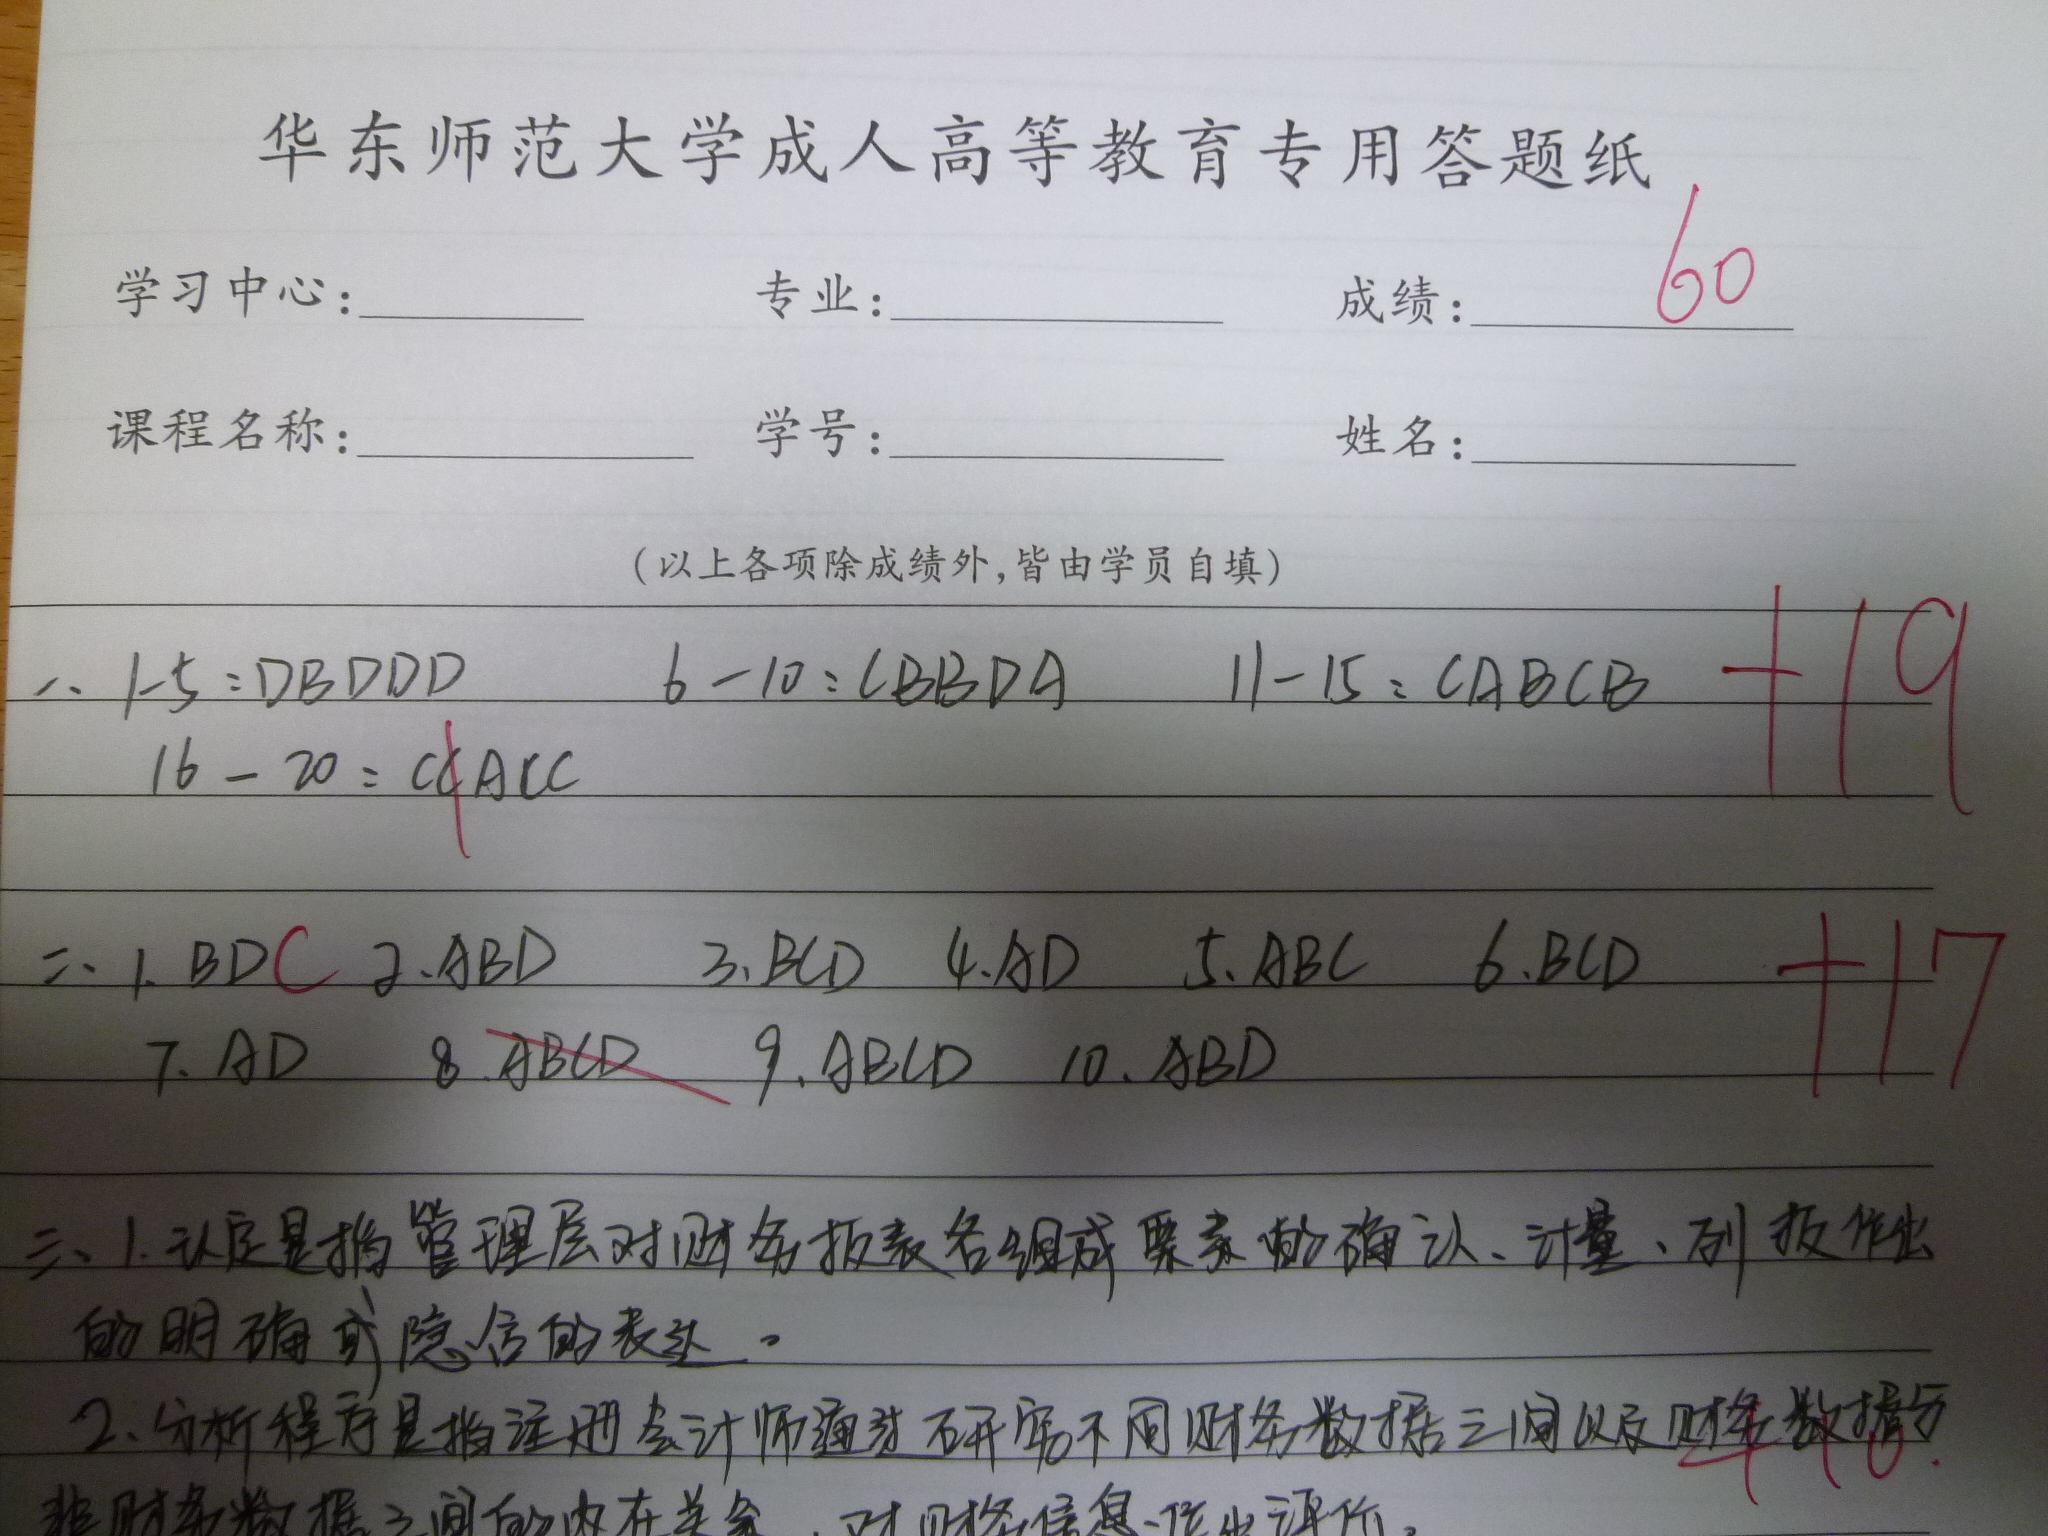 华东师范大学成人高等教育专用答题纸
学习中心: 专业: 成绩: 60
课程名称: 学号: 姓名:
(以上各项除成绩外,皆由学员自填)
一、1-5:DBDDD 6-10:CBBDA 11-15:CABCB +19
16-20:CCACC
二、1.BDC 2.ABD 3.BCD 4.AD 5.ABC 6.BCD +17
7.AD 8.ABCD 9.ABCD 10.ABD
三、1.认定是指管理层对财务报表各组成要素的确认、计量、列报作出
的明确或隐含的表达。
2.分析程序是指注册会计师通过研究不同财务数据之间以及财务数据与
+10.
非财务数据之间的内在关系,对财务信息作出评价。